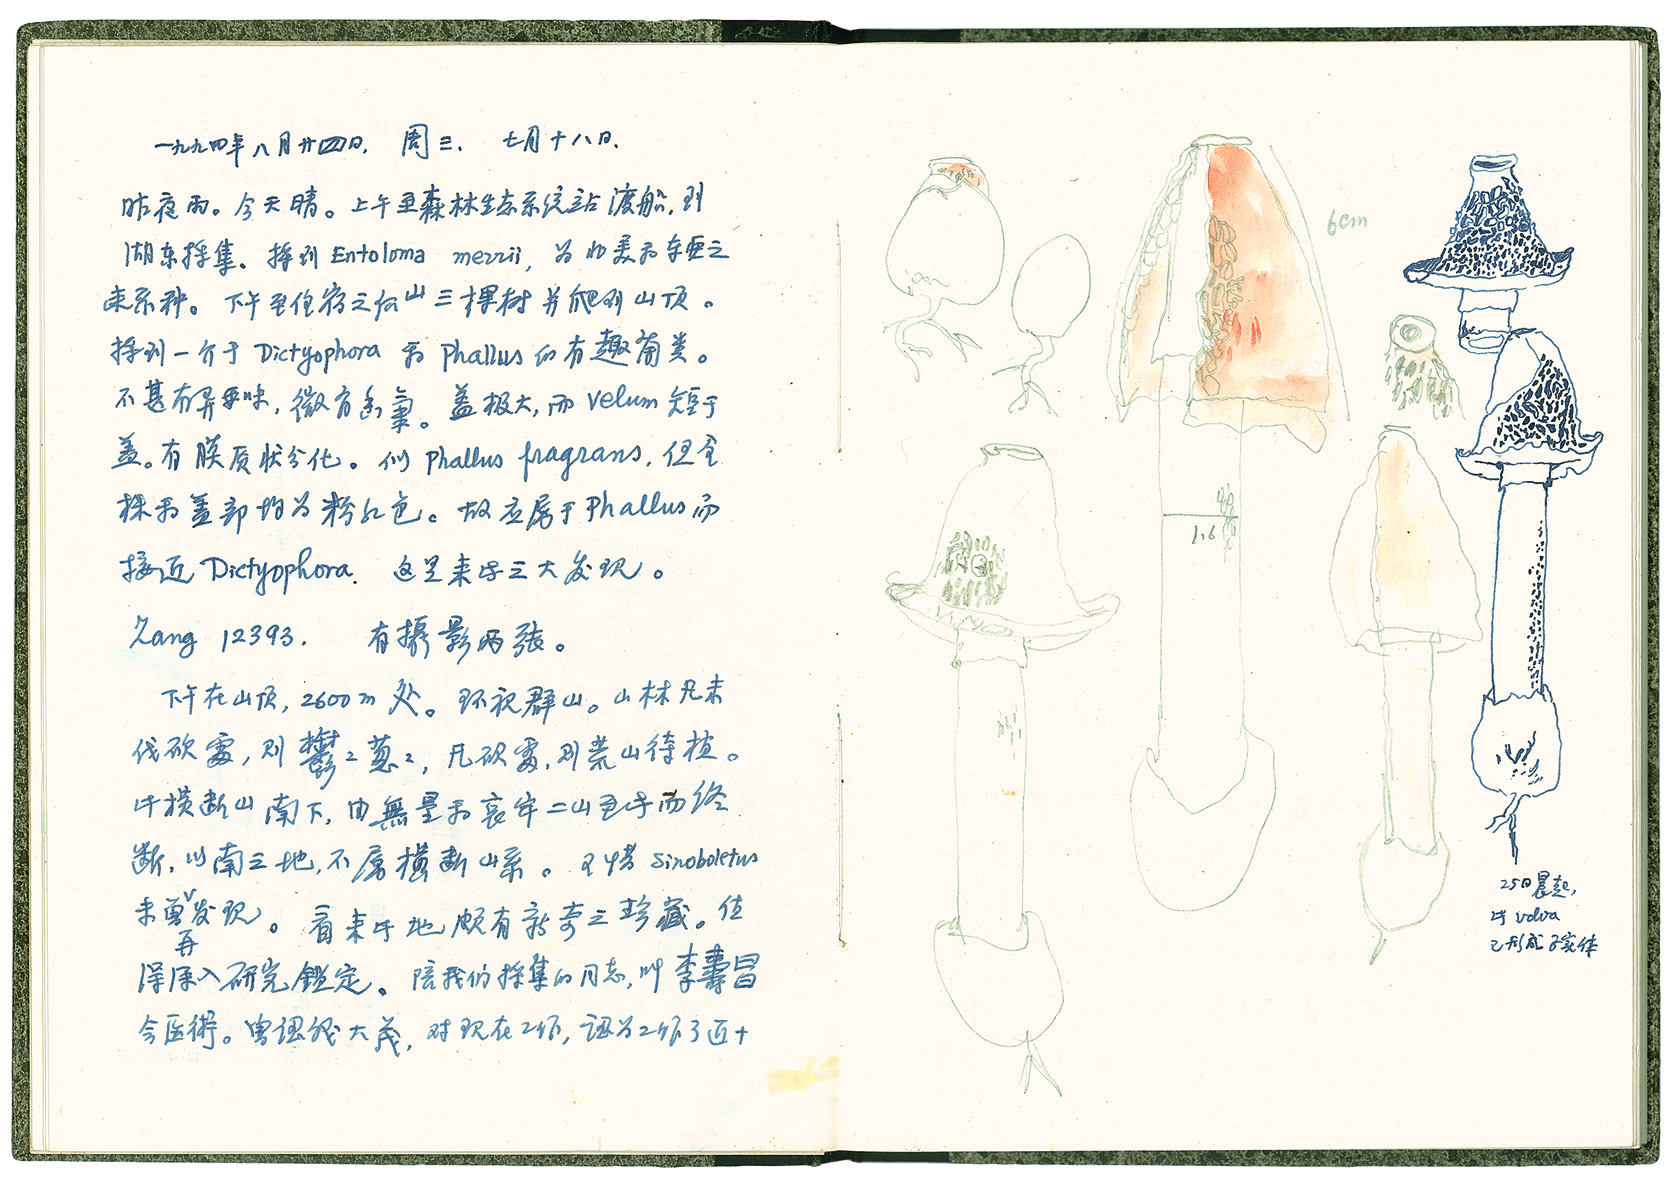 一九九四年八月廿四日. 周三. 七月十八日.
昨夜雨。今天晴。上午至森林生态系统站渡船,到
湖东採集。採到 Entoloma merrii, 为北美和东亚之
来系种。下午至住宿之后山三棵树并爬到山顶。
採到一介于 Dictyophora 和 Phallus 的有趣菌类。
不甚有异要味,微有香氣。盖极大,而 velum 短于
盖。有膜质状分化。似 Phallus fragrans, 但全
株和盖部均为粉红色。故应属于 Phallus 而
接近 Dictyophora. 这是来此三大发现。
Zang 12393. 有攝影两张。
下午在山顶, 2600m 处。环视群山。山林凡未
伐砍處,则鬱〻葱〻,凡砍處,则荒山待植。
此横断山南下,由無量和哀牢二山至此而终
断,以南之地,不属横断山系。可惜 Sinoboletus
未再发现。看来此地颇有新奇之珍藏。值
深入研究鑑定。陪我们採集的同志,叫李壽昌
会医術。曾误践大茂,对现在工作,认为工作了近十
6cm
1.6
25日晨起,
此 volva
已形成子实体